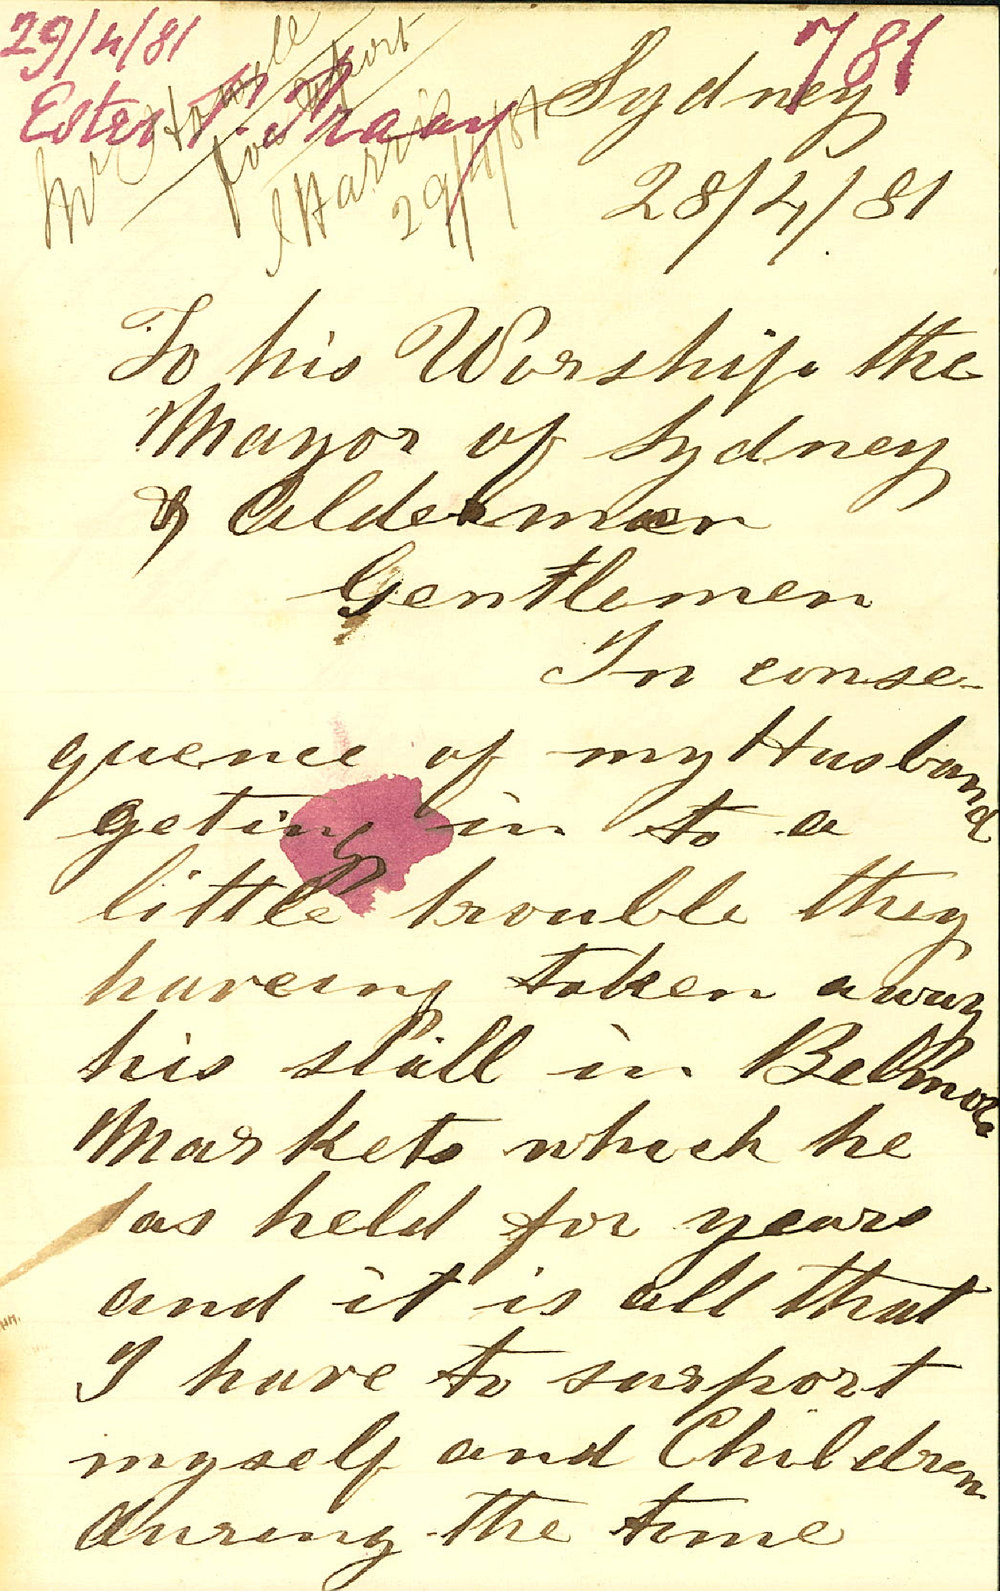 29/4/81
781
Mr
for Report
29/4/81
Sydney
28/4/81
To his Worship the
Mayor of Sydney
& Aldermen
Gentlemen
In conse-
quence of my Husband
geting in to a
little trouble they
haveing taken away
his stall in Belmore
Markets which he
has held for years
and it is all that
I have to surport
myself and Children
during the time